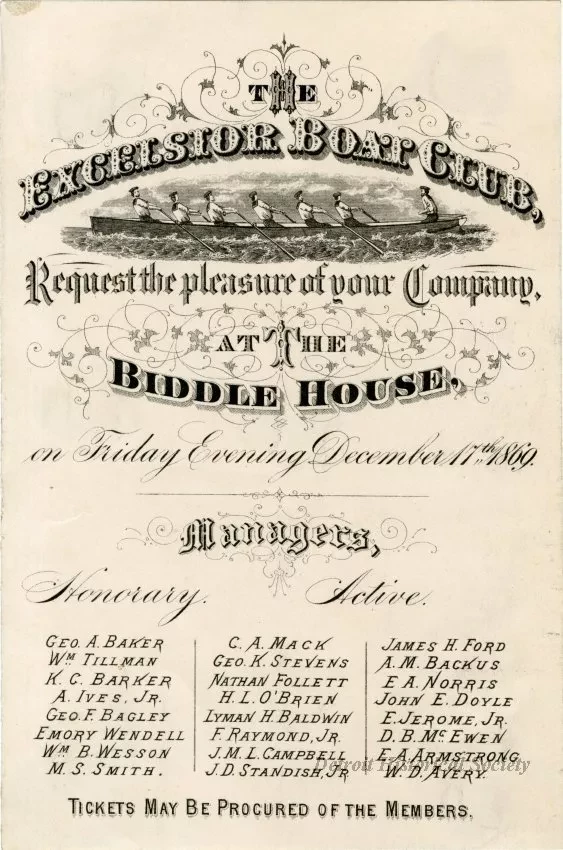 THE
EXCELSIOR BOAT CLUB,
Request the pleasure of your Company,
AT THE
BIDDLE HOUSE,
on Friday Evening December 17th 1869.
Managers,
Honorary. Active.
GEO. A. BAKER
Wm TILLMAN
K. C. BARKER
A. IVES, JR.
GEO. F. BAGLEY
EMORY WENDELL
Wm B. WESSON
M. S. SMITH.
C. A. MACK
GEO. K. STEVENS
NATHAN FOLLETT
H. L. O'BRIEN
LYMAN H. BALDWIN
F. RAYMOND, JR.
J. M. L. CAMPBELL
J. D. STANDISH, JR
JAMES H. FORD
A. M. BACKUS
E A. NORRIS
JOHN E. DOYLE
E. JEROME, JR.
D. B. McEWEN
E. A. ARMSTRONG
W. D. AVERY.
Detroit Historical Society
TICKETS MAY BE PROCURED OF THE MEMBERS.